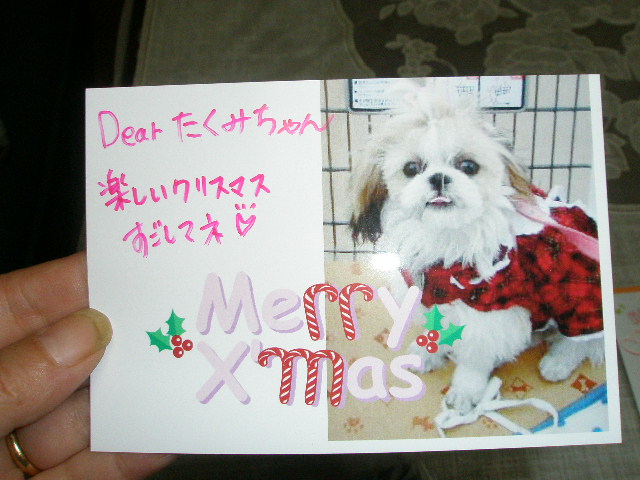 Dear たくみちゃん
楽しいクリスマス
すごしてネ
Merry
X'mas